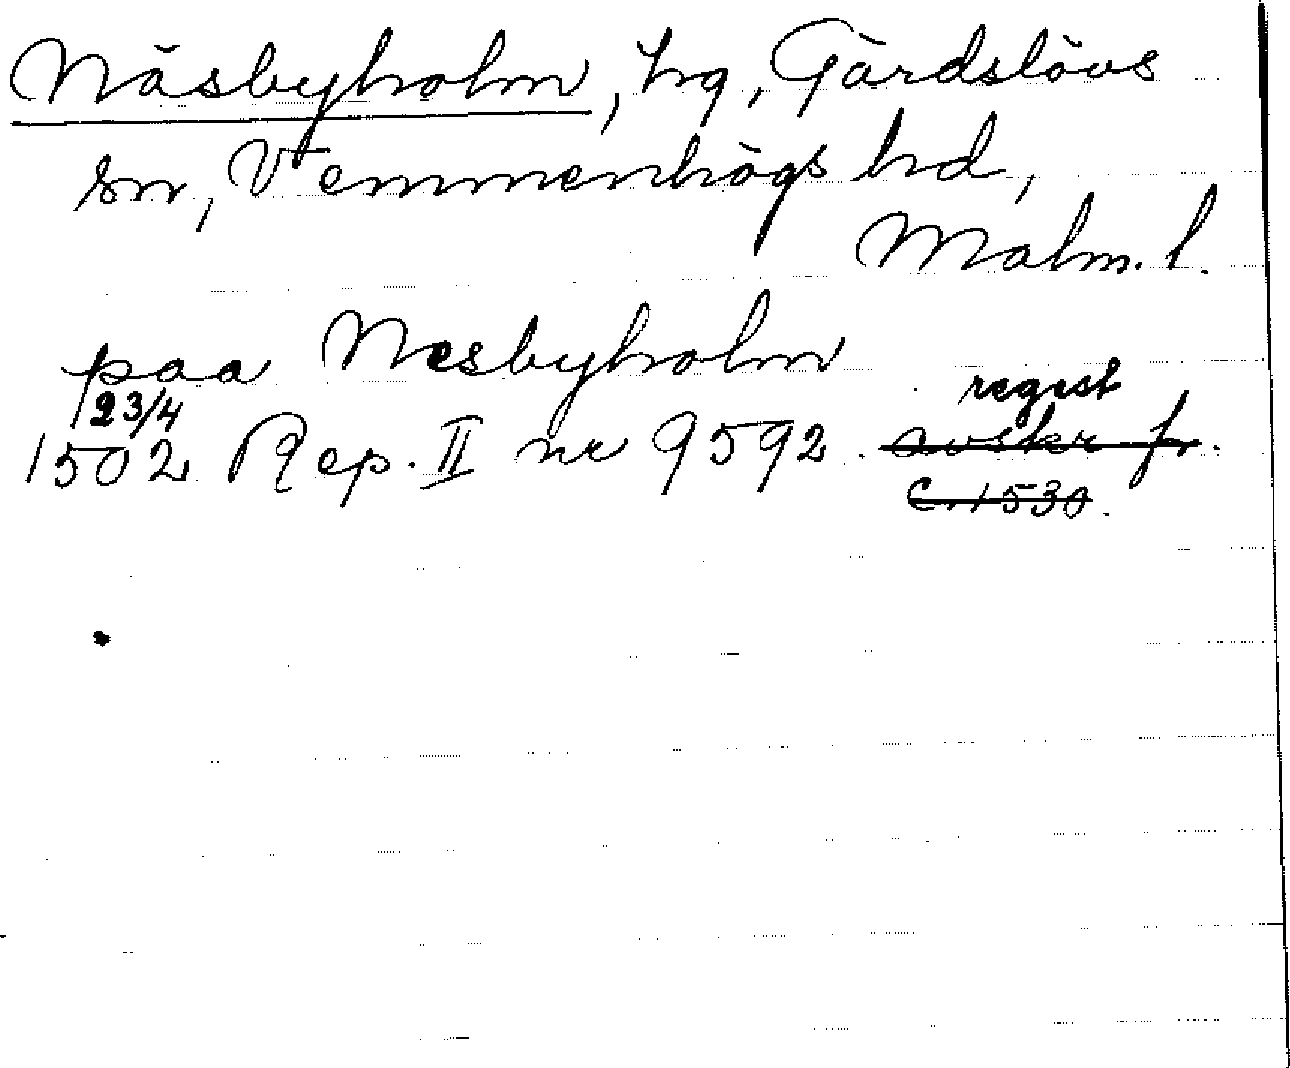 Näsbyholm, hg, Gärdslövs
sn, Vemmenhögs hd,
Malm. l.
paa Nesbyholm
23/4 regest
1502 Rep. II nr 9592. avskr fr.
c. 1530.